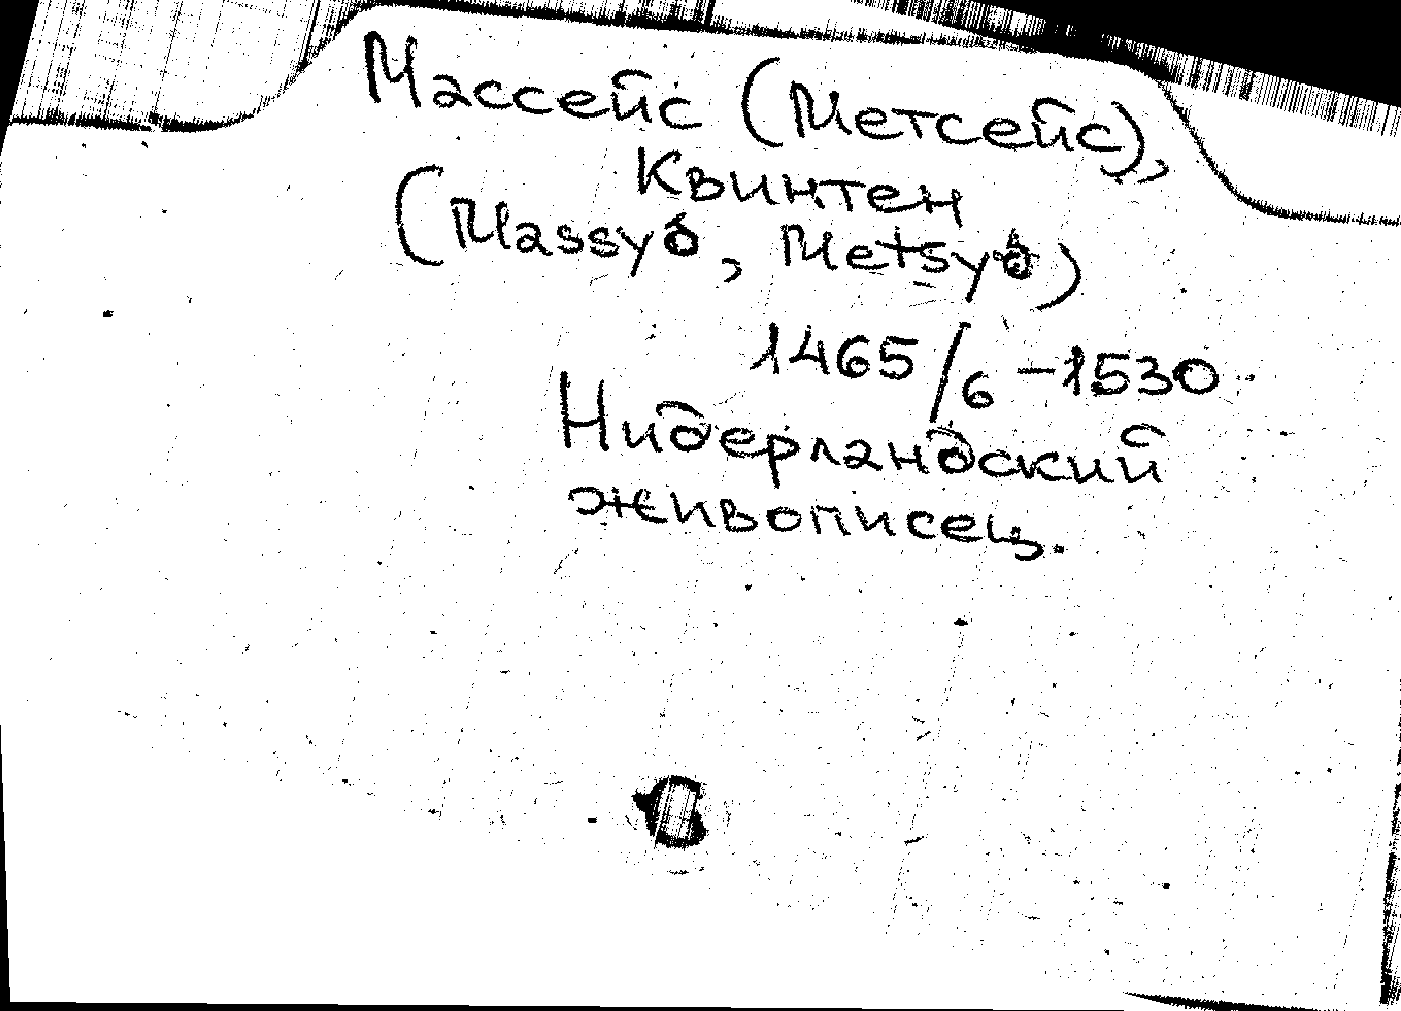 Массейс (Метсейс),
Квинтен
(Massys, Metsys)
1465/6 – 1530
Нидерландский
живописец.